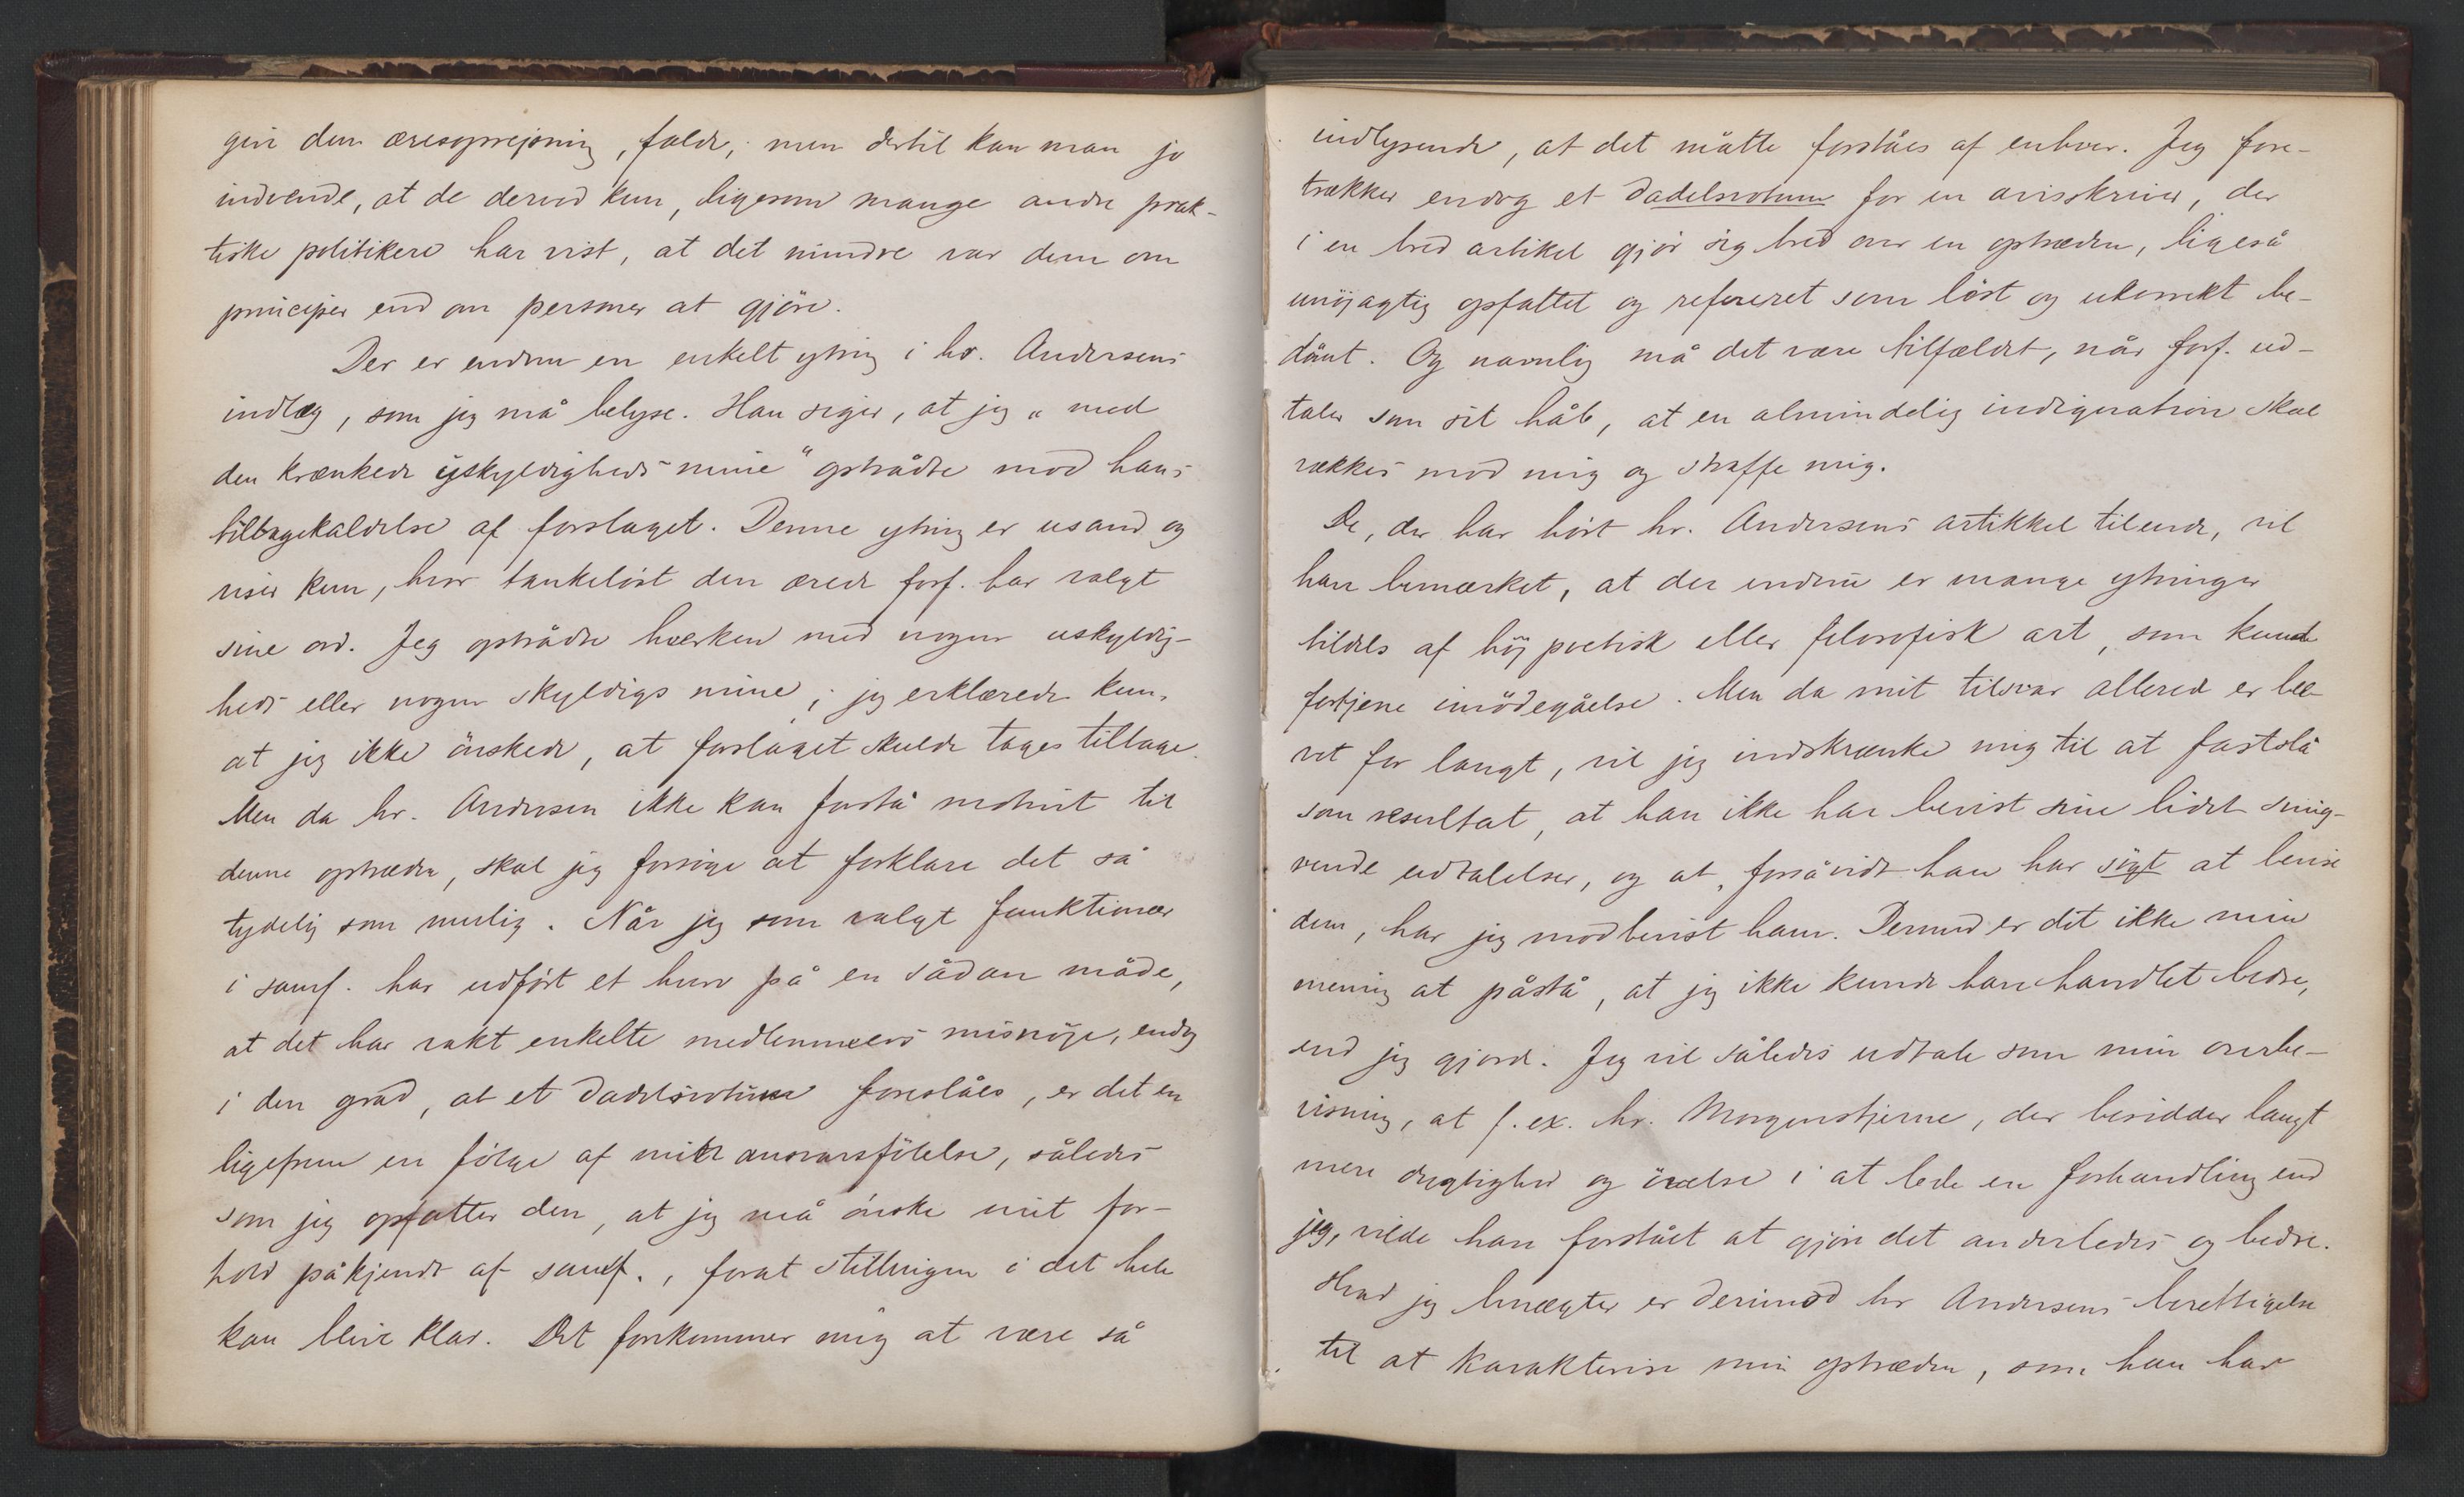 give dem æresoprejsning, faldt; men dertil kan man jo
indvende, at de derved kun, ligesom mange andre prak-
tiske politikere har vist, at det mindre var dem om
principer end om personer at gjöre.
Der er endnu en enkelt ytring i hr. Andersens
indlæg, som jeg må belyse. Han siger, at jeg „med
den krænkede uskyldigheds mine“ optrådte mod hans
tilbagekaldelse af forslaget. Denne ytring er usand og
viser kun, hvor tankelöst den ærede forf. har valgt
sine ord. Jeg optrådte hverken med nogen uskyldig-
heds eller nogen skyldigs mine; jeg erklærede kun,
at jeg ikke önskede, at forslaget skulde tages tilbage.
Men da hr. Andersen ikke kan forstå motivet til
denne optræden, skal jeg forsöge at forklare det så
tydelig som mulig. Når jeg som valgt funktionær
i samf. har udfört et hverv på en sådan måde,
at det har vakt enkelte medlemmers misnöje, endog
i den grad, at et dadelsvotum foreslåes, er det en
ligefrem en fölge af mit ansvarsfölelse, således
som jeg opfatter den, at jeg må önske mit for-
hold påkjendt af samf., forat stillingen i det hele
kan blive klar. Det forekommer mig at være så
indlysende, at det måtte forståes af enhver. Jeg fore-
trækker endog et dadelsvotum for en avisskriver, der
i en bred artikel gjör sig bred over en optræden, ligeså
unöjagtig opfattet og refereret som löst og ukorrekt be-
dömt. Og navnlig må det være tilfældet, når forf. ud-
taler som sit håb, at en almindelig indignation skal
vækkes mod mig og straffe mig.
De, der har hört hr. Andersens artikkel tilende, vil
have bemærket, at der endnu er mange ytringer
tildels af höj poetisk eller filosofisk art, som kunde
fortjene imödegåelse. Men da mit tilsvar allerede er ble-
vet for langt, vil jeg indskrænke mig til at fastslå
som resultat, at han ikke har bevist sine lidet smig-
rende udtalelser, og at, forsåvidt han har sögt at bevise
dem, har jeg modbevist ham. Dermed er det ikke min
mening at påstå, at jeg ikke kunde have handlet bedre,
end jeg gjorde. Jeg vil således udtale som min overbe-
visning, at f. ex. hr. Morgenstjerne, der besidder langt
mere dygtighed og övelse i at lede en forhandling end
jeg, vilde have forstået at gjöre det anderledes og bedre.
Hvad jeg benægter er derimod hr Andersens berettigelse
til at karakterisere min optræden, som han har